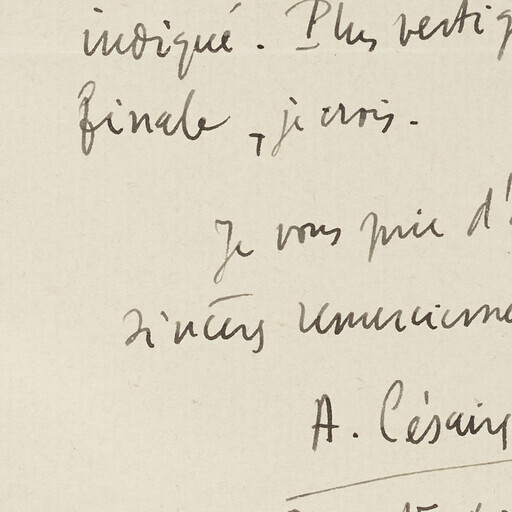 indiqué. Plus vertig
finale, je crois.
Je vous prie d'
sincères remercieme
A. Césaire